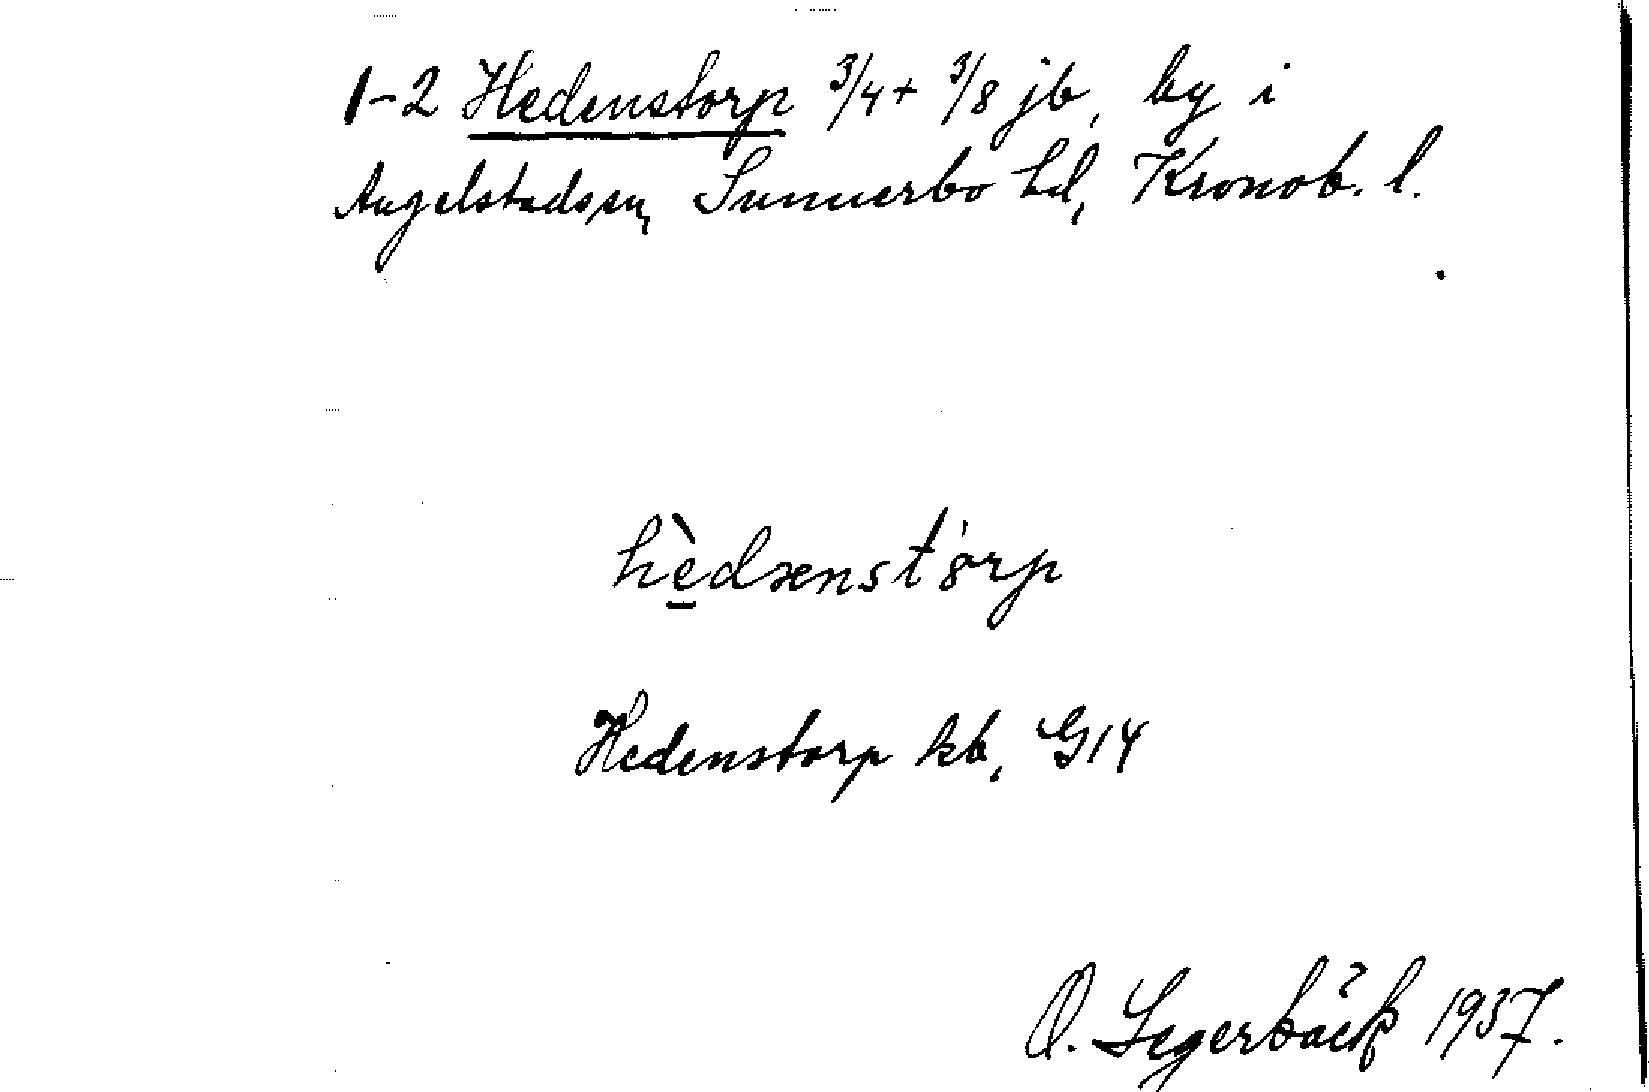 1-2 Hedenstorp 3/4 + 3/8 jb, by i
Angelstads sn, Sunnerbo hd, Kronob. l.
hèdxnstorp
Hedenstorp kb, G14
O. Segerbäck 1937.